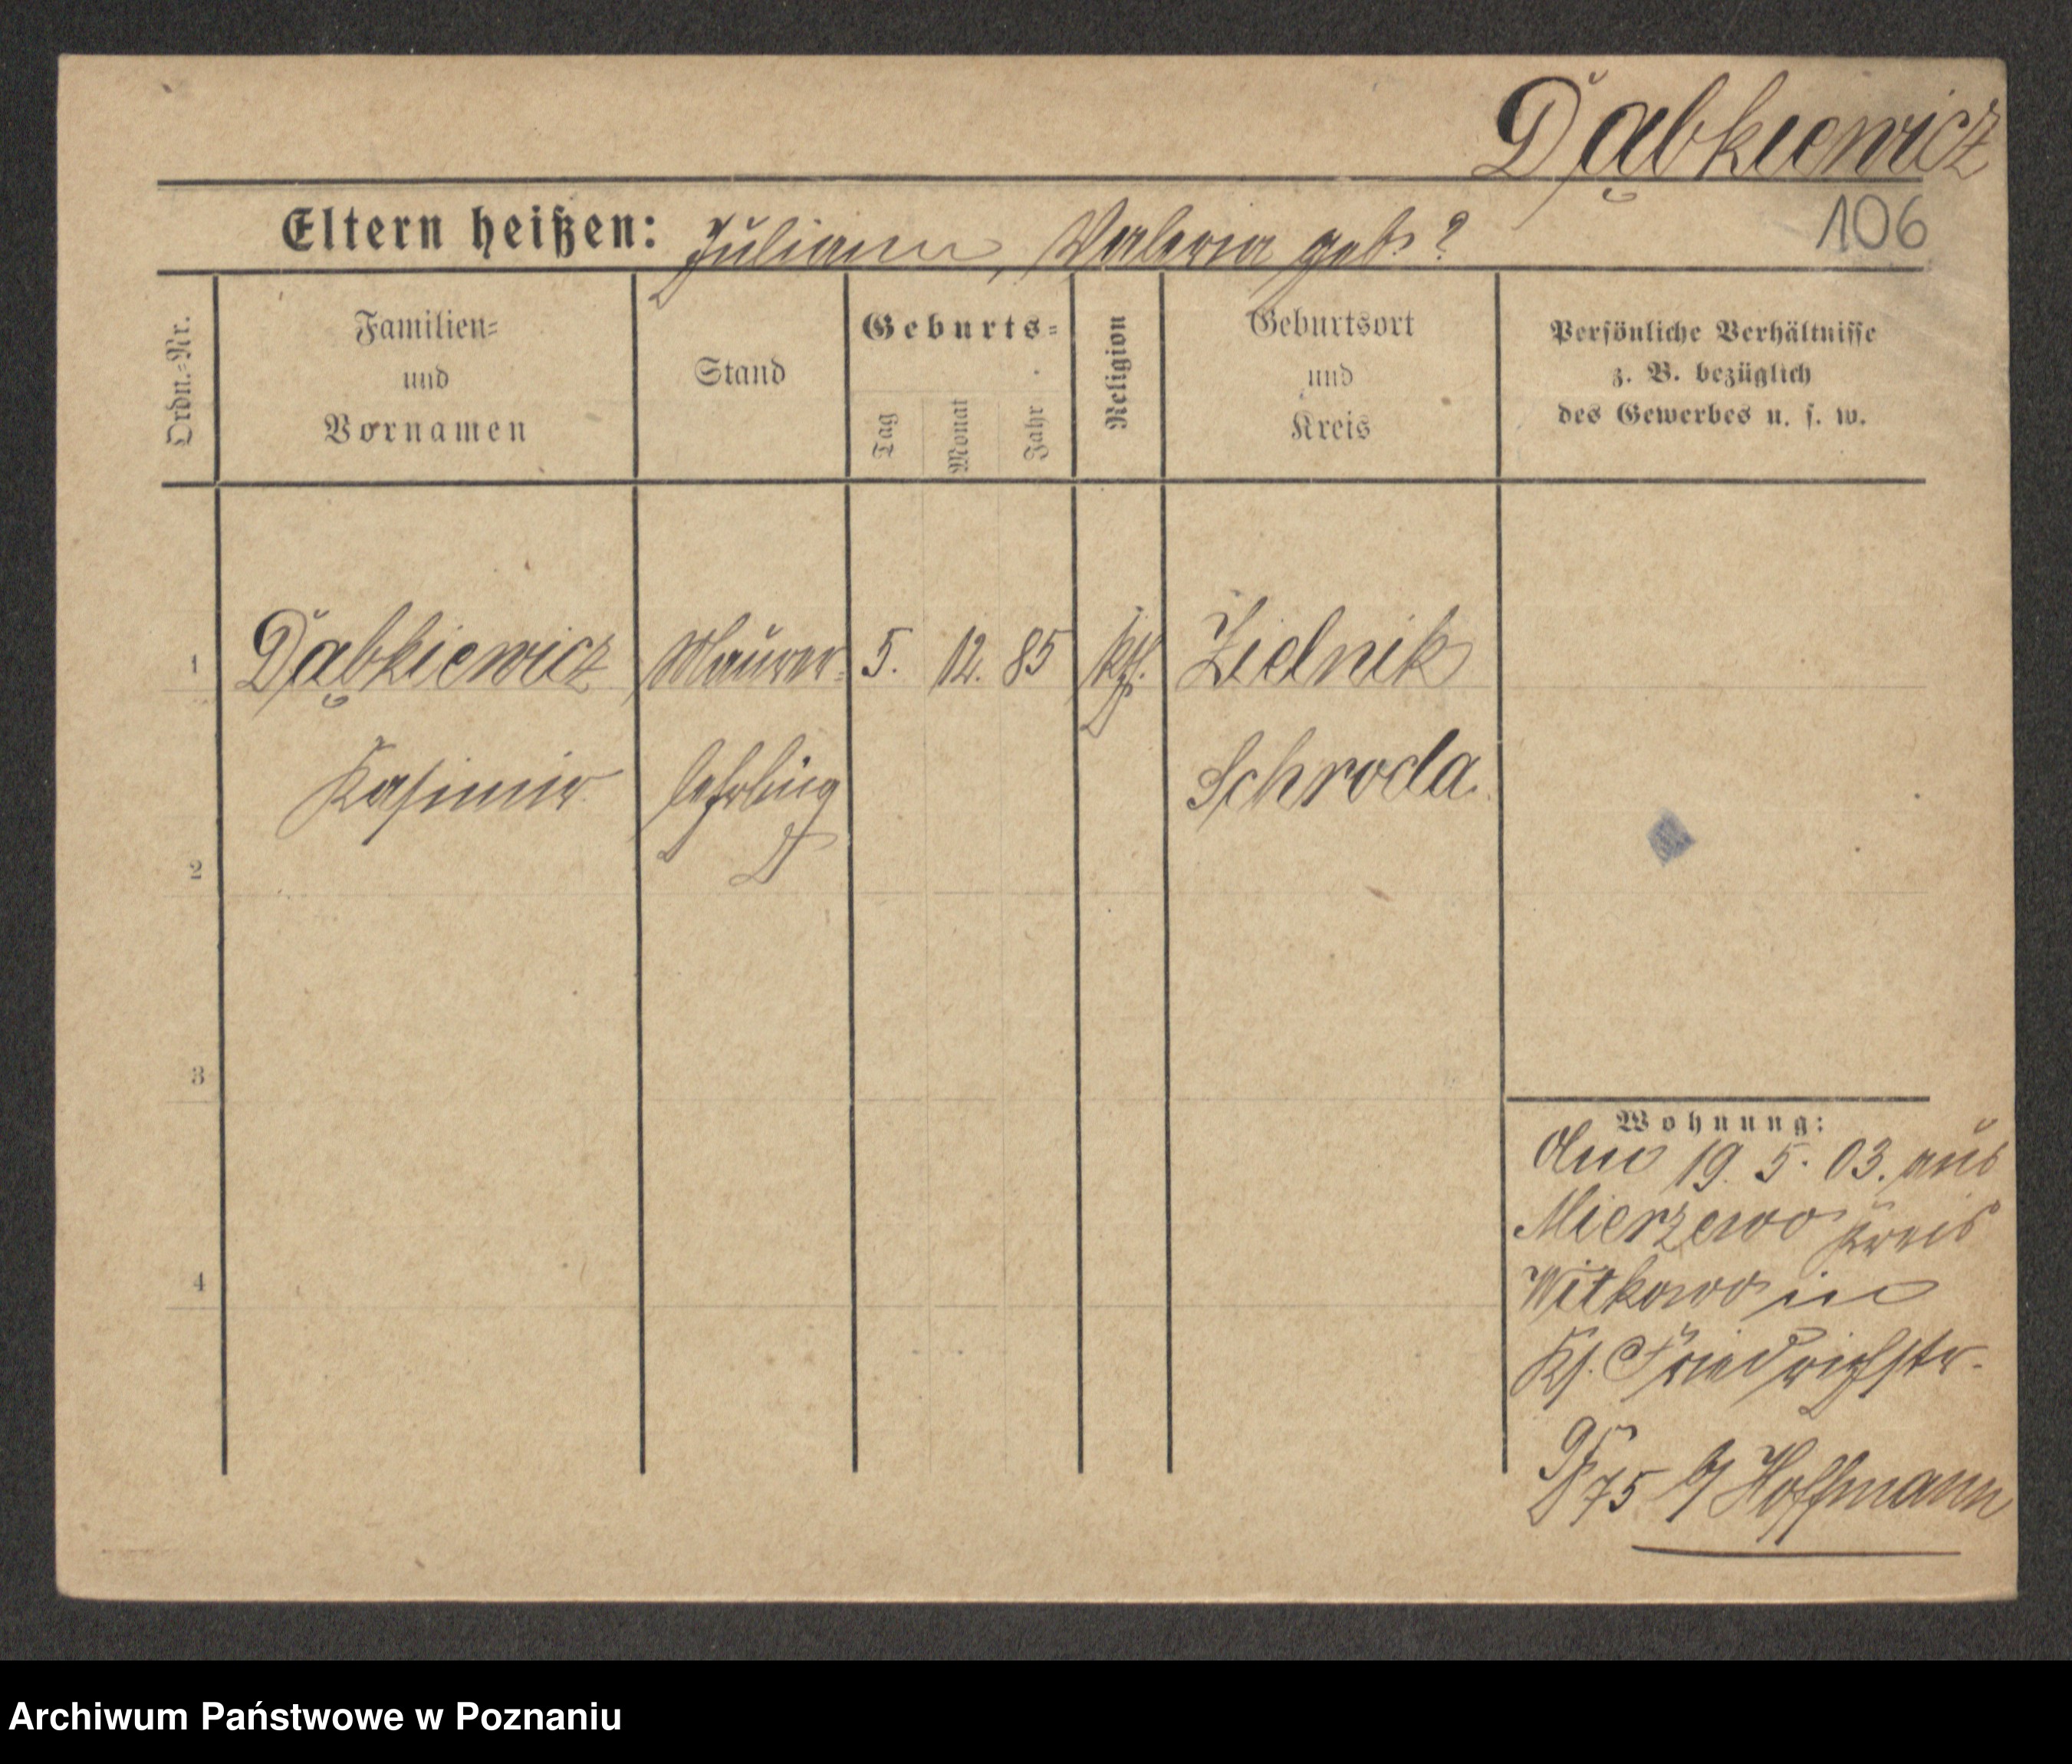 Dąbkiewicz
106
Eltern heißen: Julian, Valeria geb. ?
Ordn.=Nr.
Familien=
und
Vornamen
Stand
Geburts=
Tag
Monat
Jahr
Religion
Geburtsort
und
Kreis
Persönliche Verhältnisse
z. B. bezüglich
des Gewerbes u. s. w.
1 Dąbkiewicz Maurer= 5. 12. 85 kth. Zielnik
Kasimir lehrling Schroda.
2
3
4
Wohnung:
19. 5. 03. aus
Mierzewo Kreis
Witkowo in
Friedrichstr.
75 b/ Hoffmann
Archiwum Państwowe w Poznaniu